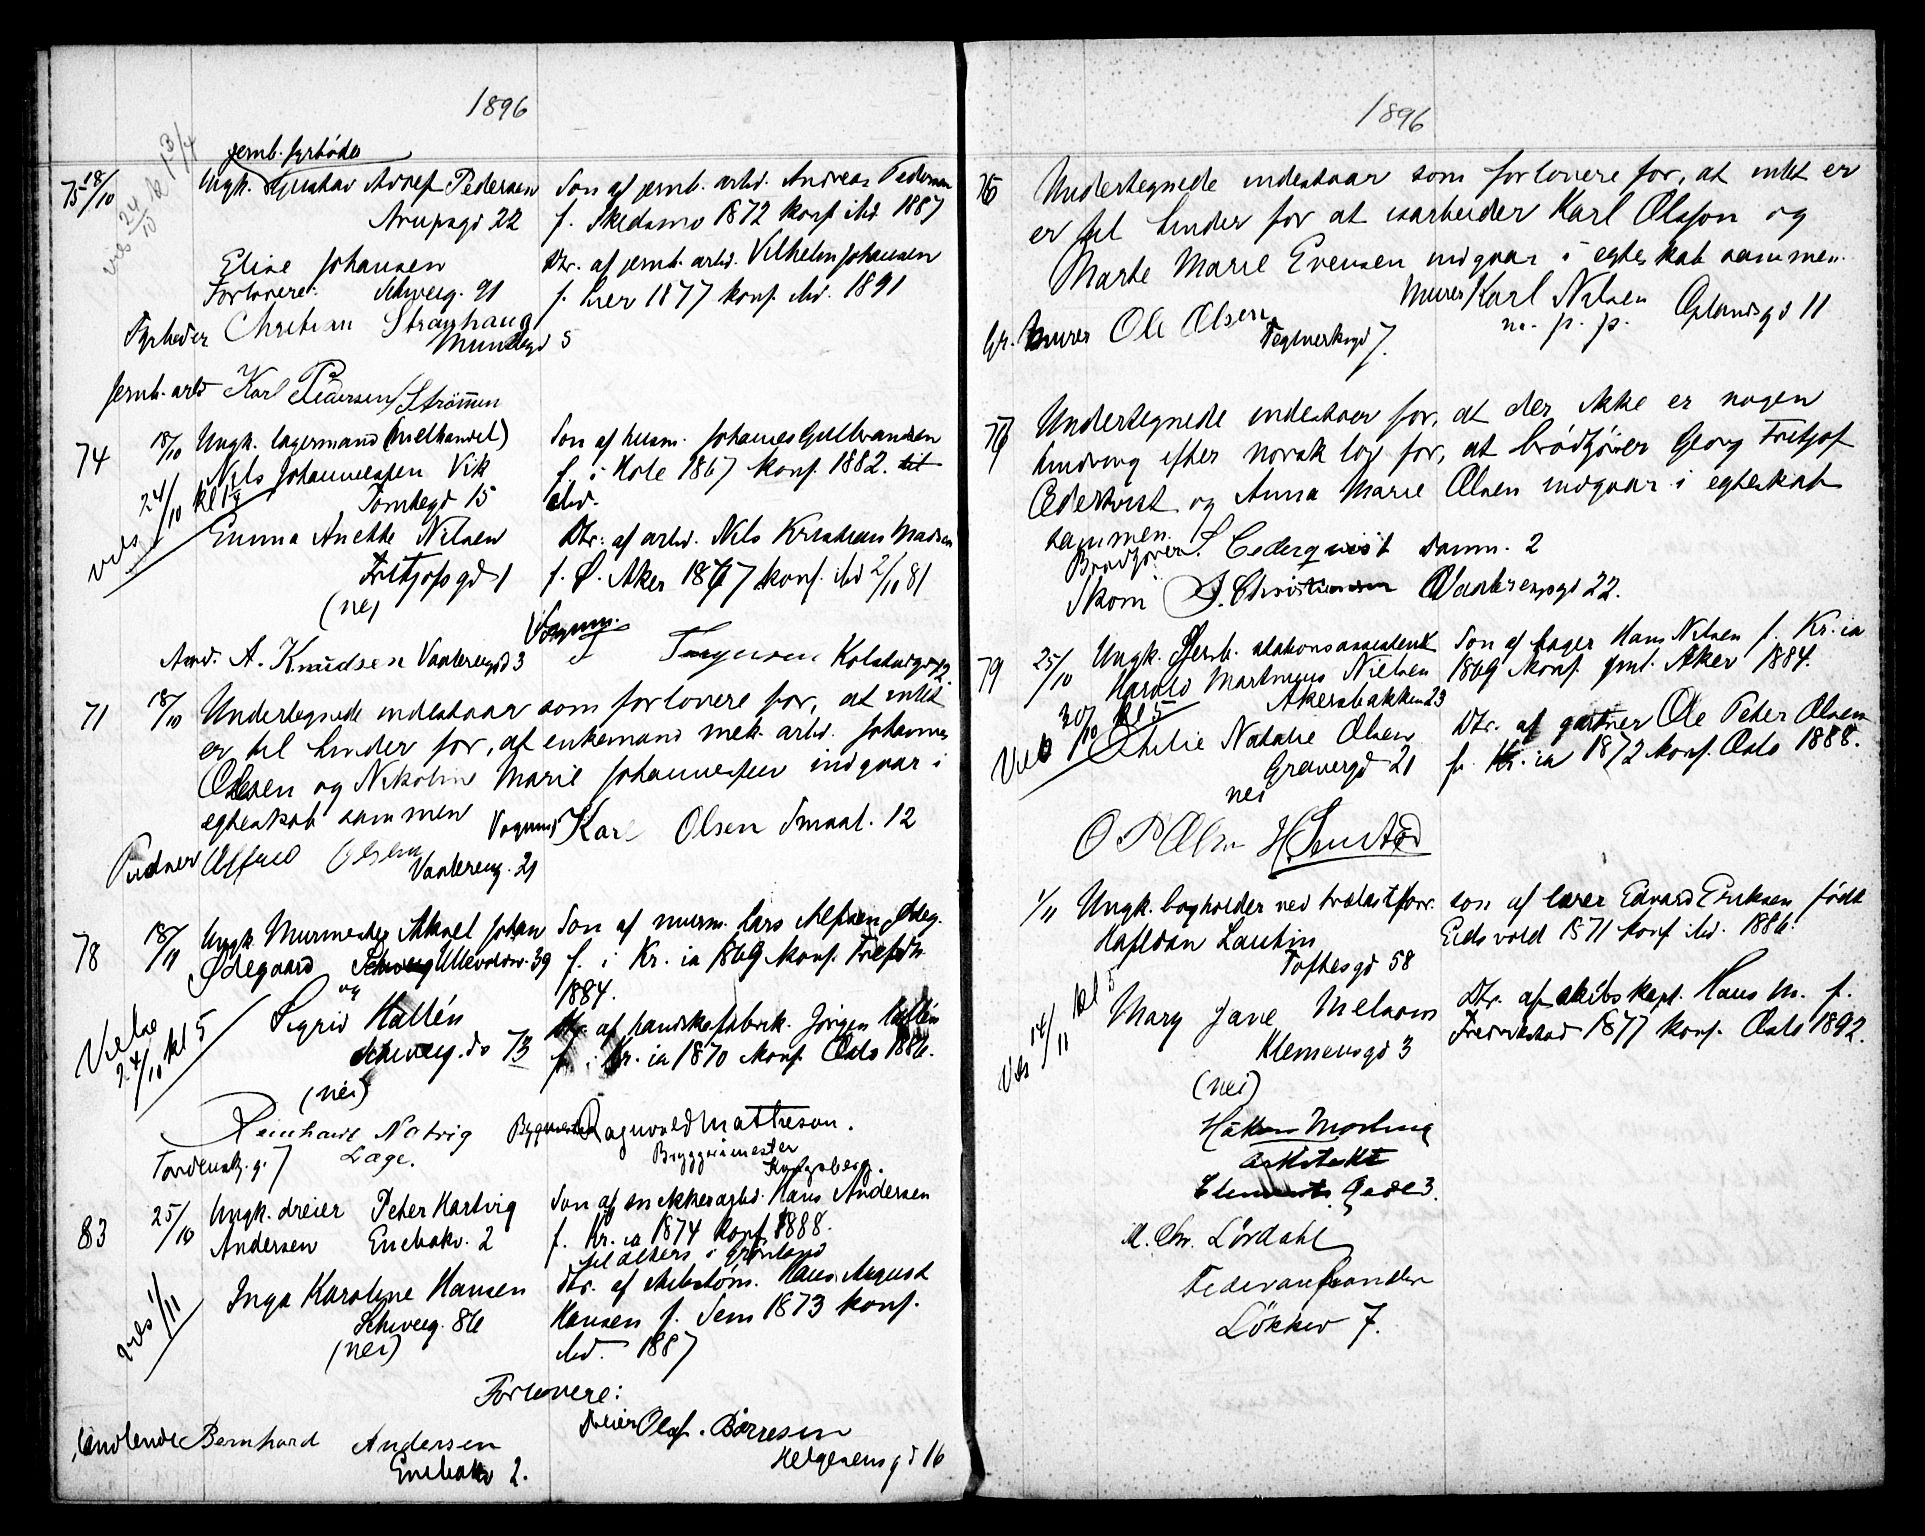 1896
jernb. fyrbøder
75 18/10 Ungk. Gustav Adolf Pedersen
Arupsgd 22
vies 24/10 kl 1 3/4
Søn af jernb. arbd. Andreas Pedersen
f. Skedsmo 1872 konf. ibd. 1887
Elise Johansen
Dtr. af jernb. arbd. Vilhelm Johansen
Forlovere: Schweig. 91
f. Lier 1877 konf. ibd. 1891
Fyrbøder Christian
Munkegd 5
Jernb. arbd Karl Pedersen / Strømmen
74 18/10 Ungk. lagermand (melhandel)
Nils Johannessen Vik
Tomtegd 15
Søn af husm. Johannes Gulbrandsen
f. i Hole 1867 konf. 1882.
ibd.
vies 24/10 kl
Emma Anette Nilsen
Fritjofsgd 1
(nei)
Dtr. af arbd. Nils Kristian Madsen
f. Ø. Aker 1867 konf. ibd 2/10 81
Vognm.
Arbd. A. Knudsen Vaalerengd 3
71 18/10 Undertegnede indestaar som forlovere for, at intet
er til hinder for, at enkemand mek. arbd. Johannes
Olsen og Nikoline Marie Johannessen indgaar i
egteskab sammen
Vognm. Karl Olsen Smaal. 12
Pudser Alfred Olsen
Vaalereng. 21
78 18/11 Ungk. Murmester Aksel Johan
Ødegaard Ullevoldsv. 39
og
Søn af murm. Lars Alfsen Ødeg.
f. i Kr.ia 1869 konf. Trefoldh.
1884.
Sigrid Hallén
Schweig.do 73
(nei)
Dtr. af handskefabrik. Jørgen Hallén
f. i Kr.ia 1870 konf. Oslo 1886.
Vielse 24/10 kl 5
Reinhardt Natvig
Tordensk.g. 7 Læge.
Bygmester Ragnvald Matheson.
Bryggerimester
83 25/10 Ungk. dreier Peter Hartvig
Andersen Enebakv. 2
Søn af snekkerarbd. Hans Andersen
f. Kr.ia 1874 konf. 1888.
til alters i Grønland
vies 1/11
Inga Karoline Hansen
Schweig. 86
(nei)
Dtr. af Hans August
Hansen f. Sem 1873 konf.
ibd. 1887
Forlovere:
Handlende Bernhard Andersen
Enebakv 2.
Dreier Olaf. Børresen
Helgesensgd 16
1896
75 Undertegnede indestaar som forlovere for, at intet er
er til hinder for at isarbeider Karl Olsson og
Marte Marie Evensen indgaar i egteskab sammen.
Murer Karl Nilsen Oplandsgd 11
m. p. p.
Gr. murer Ole Olsen
Teglverksgd 7.
76 Undertegnede indestaar for, at der ikke er nogen
hindring efter norsk lov for, at brødkjører Georg Fritjof
Cederkvist og Anna Marie Olsen indgaar i egteskab
sammen.
Brødkjører S. Cederqvist Damm. 2
Skom J. Christiansen Vaalerengsgd 22.
79 25/10 Ungk. Jernb. stationsassistent
Harald Martinius Nielsen
Akersbakken 23
Søn af bager Hans Nilsen f. Kr.ia
1869 konf. gml. Aker 1884.
Vies 30/10 kl 5
Thilie Natalie Olsen
Gravergd 21
nei
Dtr. af gartner Ole Peter Olsen
f. Kr.ia 1872 konf. Oslo 1888.
O P Olsen
1/11 Ungk. bogholder ved trælastforr.
Halfdan Lautin
Toftesgd 58
søn af lærer Edvard Eriksen født
Eidsvold 1871 konf ibd. 1886.
Vies 14/11 kl 5
Mary Jane Melsom
Klemensgd 3
(nei)
Dtr. af skibskapt. Hans M. f.
Fredrikstad 1877 konf. Oslo 1892.
Håkon Mosling
arkitekt
Clements Gade 3.
M. Chr. Lördahl
Federanhandler
Løkkev 7.